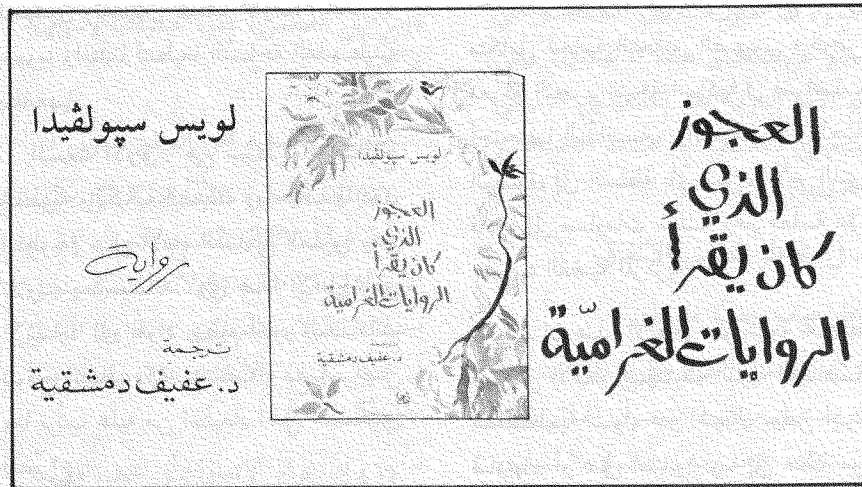 العجوز
الذي
كان يقرأ
الروايات الغراميّة
لويس سپولڤيدا
العجوز
الذي
كان يقرأ
الروايات الغرامية
د. عفيف دمشقية
لويس سپولڤيدا
رواية
ترجمة
د. عفيف دمشقية